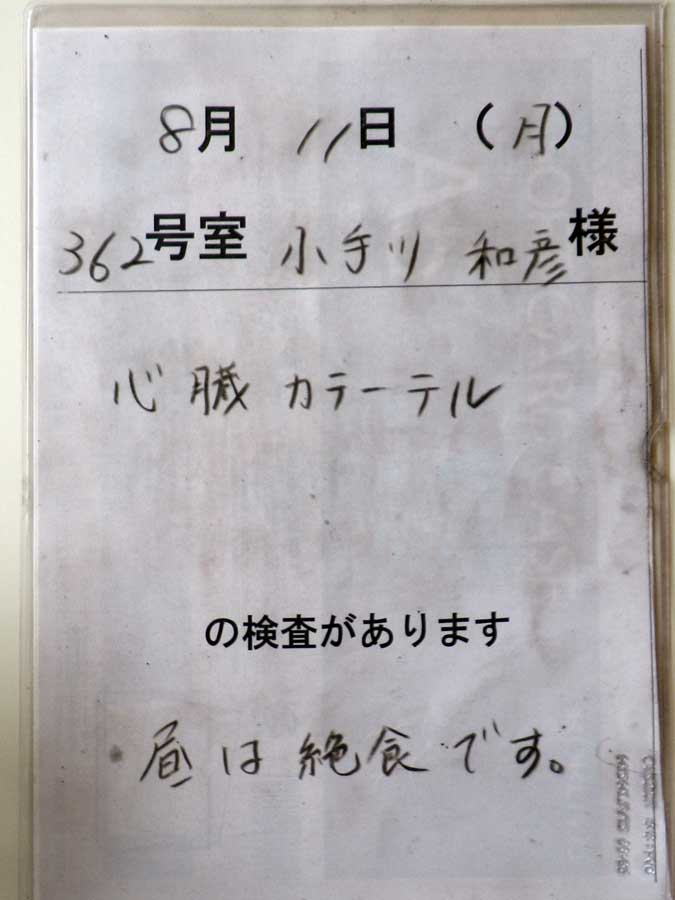 8月 11日 (月)
362号室 小手川 和彦様
心臓カテーテル
の検査があります
昼は絶食です。